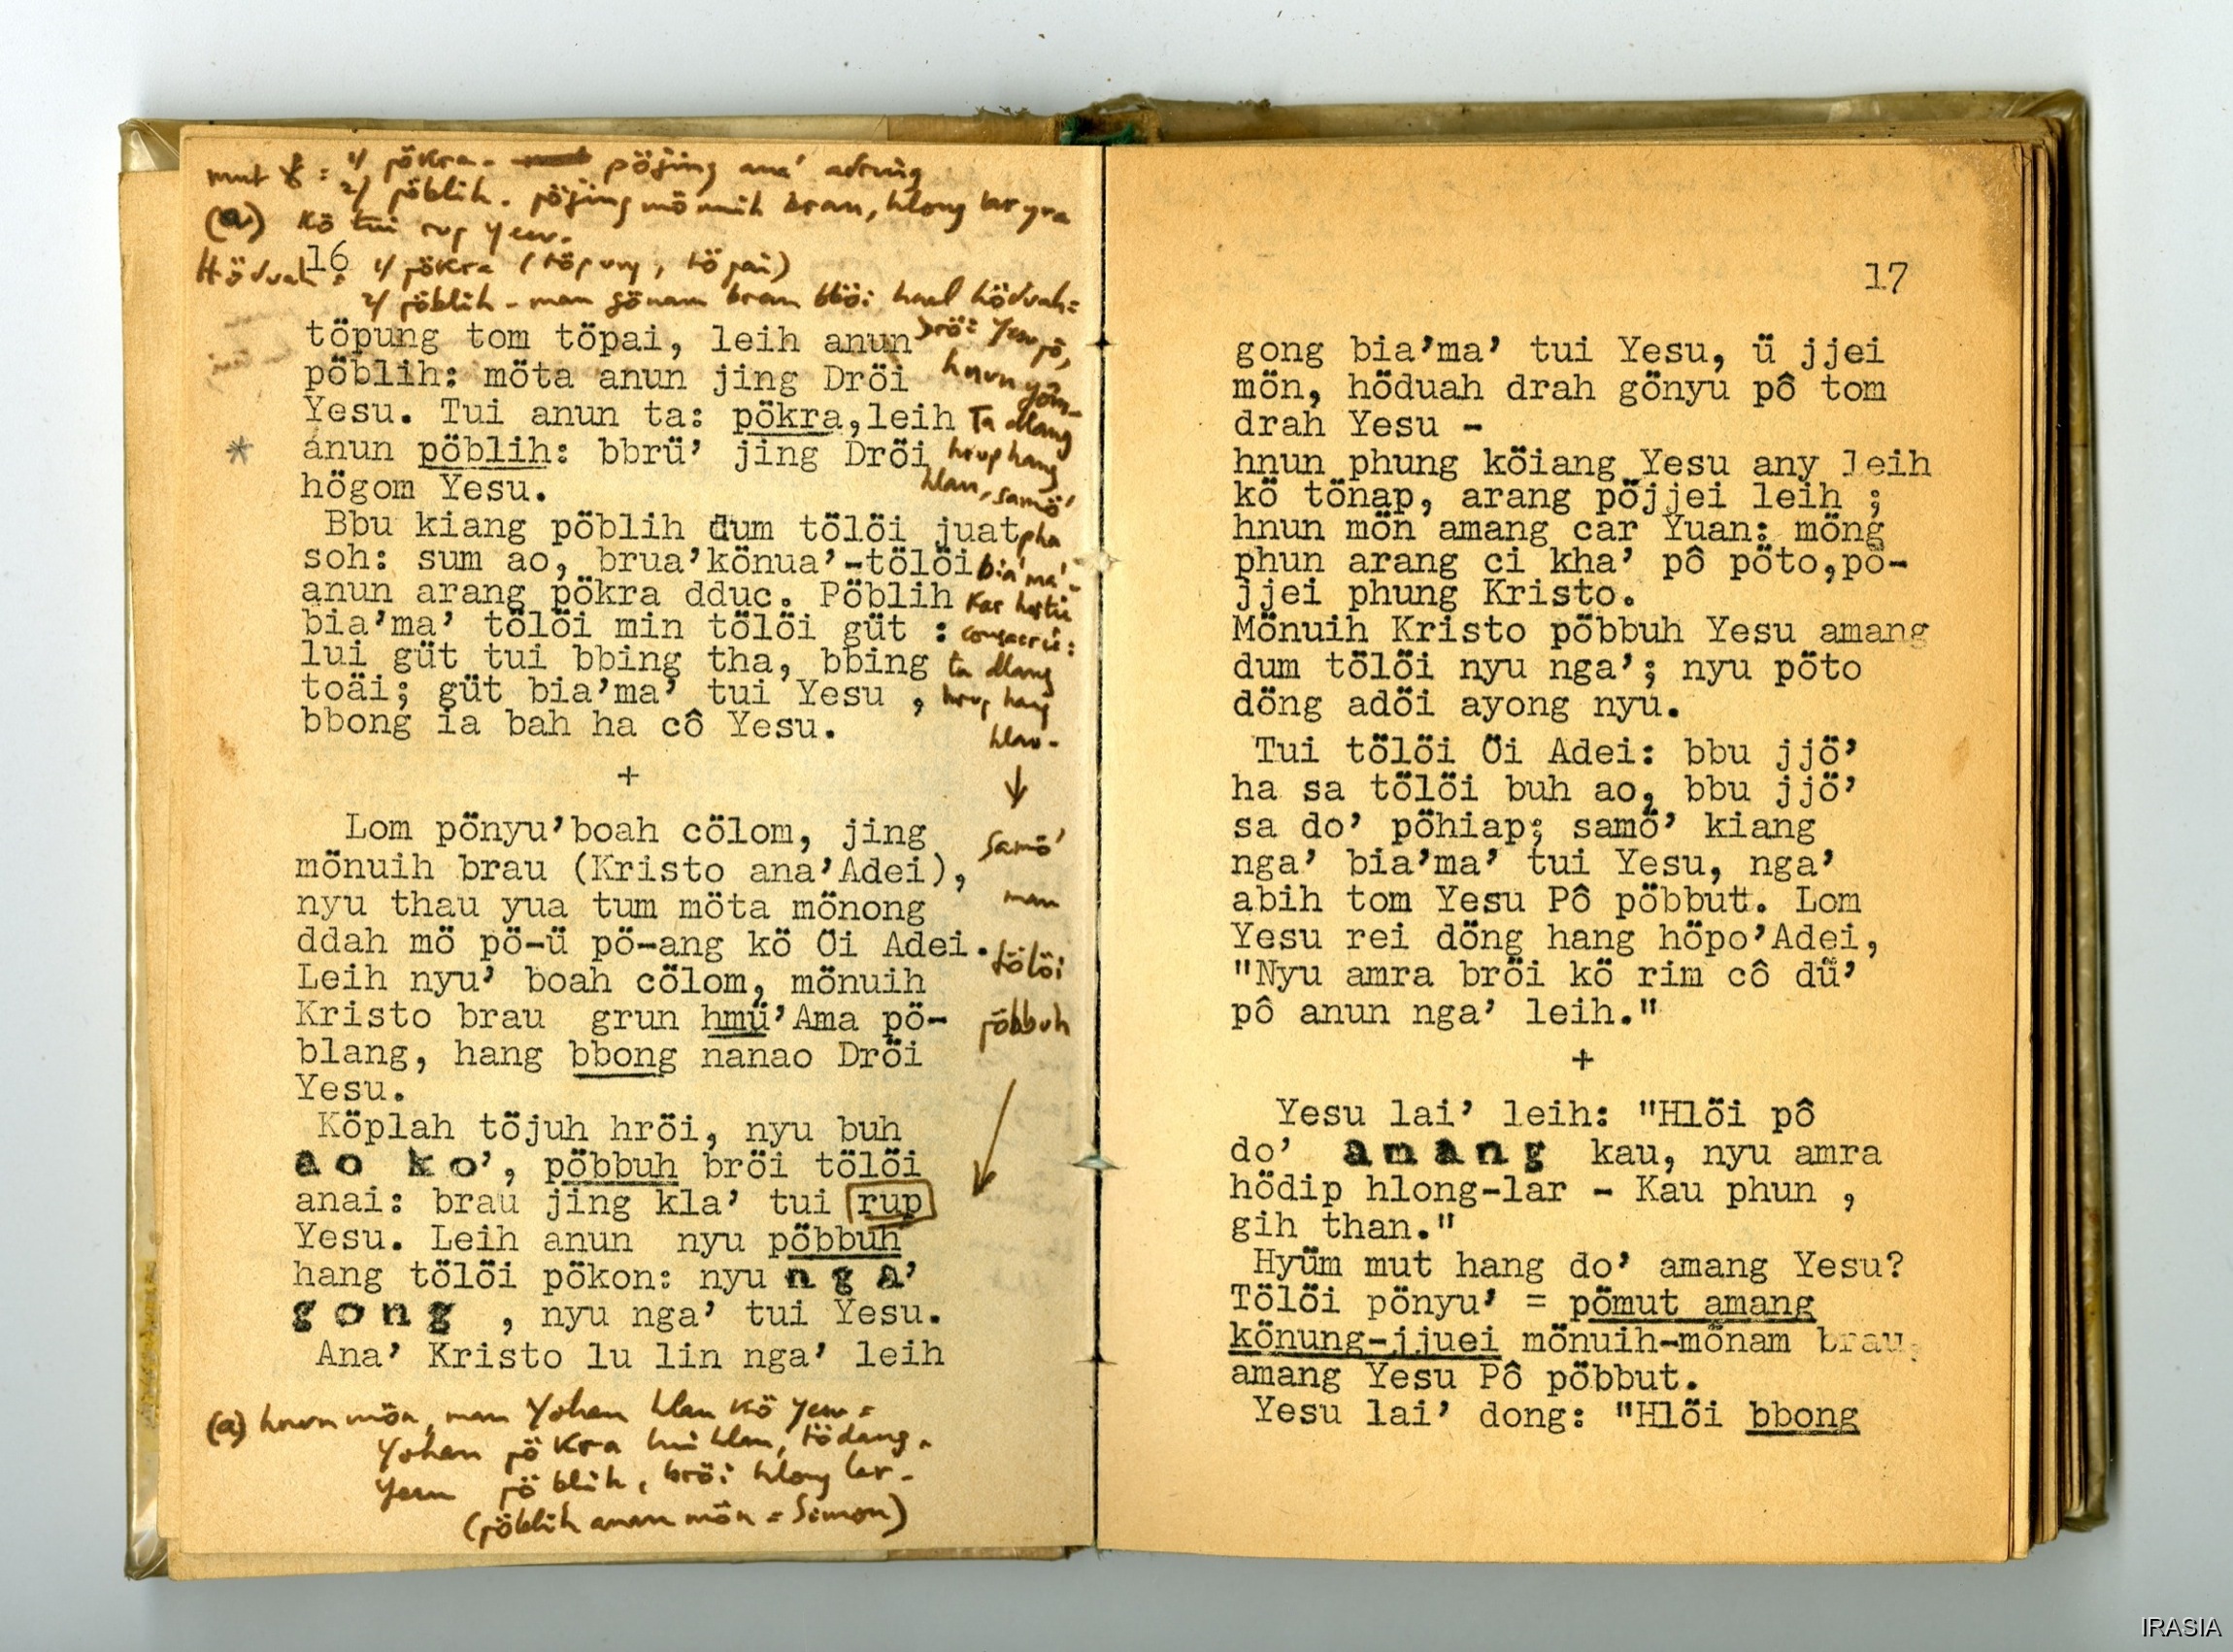 mut : 1/ pökra - pöjing ana' adrŭng
2/ pöblih - pöjing mönuih brau, hlong lar yra
(a) kö tui rup Yesu.
16
Höduah : 1/ pökra (töpung, töpai)
2/ pöblih - man gönam brau bböi höduah =
töpung tom töpai, leih anun
pöblih: möta anun jing Dröi
Yesu. Tui anun ta: pökra, leih
* anun pöblih: bbrü’ jing Dröi
högom Yesu.
Bbu kiang pöblih dum tölöi juat
soh: sum ao, brua’könua’-tölöi
anun arang pökra dduc. Pöblih
bia’ma’ tölöi min tölöi güt :
lui güt tui bbing tha, bbing
toäi; güt bia’ma’ tui Yesu ,
bbong ia bah ha cô Yesu.
+
Lom pönyu’boah cölom, jing
mönuih brau (Kristo ana’Adei),
nyu thau yua tum möta mönong
ddah mö pö-ü pö-ang kö Öi Adei.
Leih nyu’ boah cölom, mönuih
Kristo brau grun hmü’Ama pö-
blang, hang bbong nanao Dröi
Yesu.
Köplah töjuh hröi, nyu buh
ao ko’, pöbbuh bröi tölöi
anai: brau jing kla’ tui rup
Yesu. Leih anun nyu pöbbuh
hang tölöi pökon: nyu nga’
gong , nyu nga’ tui Yesu.
Ana’ Kristo lu lin nga’ leih
Dröi Yesu pô,
hnun yön-
Ta dlang
hrup hang
hlau, samö'
pha
bia'ma'-
Kar hostia
consacré:
ta dlang
hrup hang
hlau-
↓
samö'
man
tölöi
pöbbuh
(a) hnun mön, man Yohan hlau kö Yesu =
Yohan pökra hlau, tödang.
Yesu pöblih, bröi hlong lar -
(pöblih anan mön = Simon)
17
gong bia’ma’ tui Yesu, ü jjei
mön, höduah drah gönyu pô tom
drah Yesu -
hnun phung köiang Yesu any leih
kö tönap, arang pöjjei leih ;
hnun mön amang car Yuan: möng
phun arang ci kha’ pô pöto,pö-
jjei phung Kristo.
Mönuih Kristo pöbbuh Yesu amang
dum tölöi nyu nga’; nyu pöto
döng adöi ayong nyu.
Tui tölöi Öi Adei: bbu jjö’
ha sa tölöi buh ao, bbu jjö’
sa do’ pöhiap; samö’ kiang
nga’ bia’ma’ tui Yesu, nga’
abih tom Yesu Pô pöbbut. Lom
Yesu rei döng hang höpo’Adei,
"Nyu amra bröi kö rim cô dü’
pô anun nga’ leih."
+
Yesu lai’ leih: "Hlöi pô
do’ amang kau, nyu amra
hödip hlong-lar - Kau phun ,
gih than."
Hyüm mut hang do’ amang Yesu?
Tölöi pönyu’ = pömut amang
könung-jjuei mönuih-mönam brau,
amang Yesu Pô pöbbut.
Yesu lai’ dong: "Hlöi bbong
IRASIA